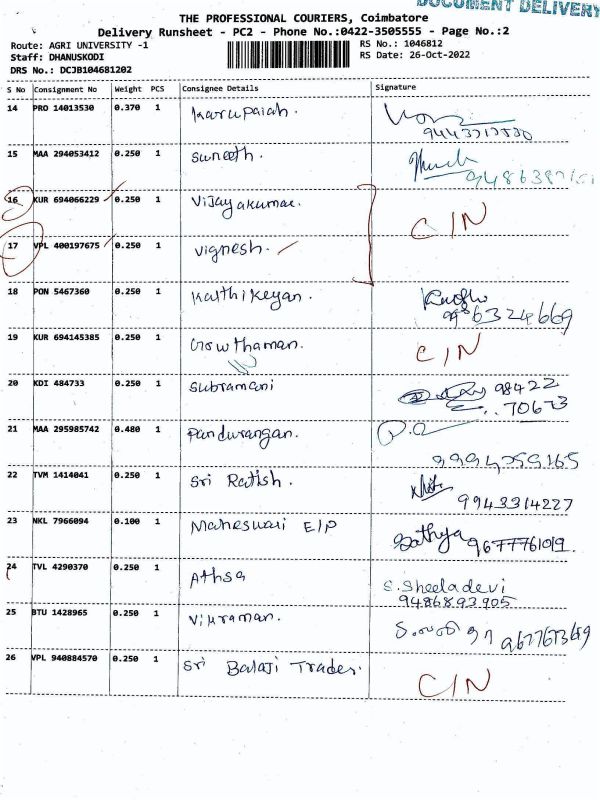 DOCUMENT DELIVERY
THE PROFESSIONAL COURIERS, Coimbatore
Delivery Runsheet - PC2 - Phone No.:0422-3505555 - Page No.:2
Route: AGRI UNIVERSITY -1
RS No.: 1046812
Staff: DHANUSKODI
RS Date: 26-Oct-2022
DRS No.: DCJB104681202
S No Consignment No Weight PCS Consignee Details Signature
14 PRO 14013530 0.370 1 Karupaiah.
15 MAA 294053412 0.250 1 Suneeth.
16 KUR 694066229 0.250 1 Vijayakumar.
17 VPL 400197675 0.250 1 Vignesh.
CIN
18 PON 5467360 0.250 1 Karthikeyan.
6324669
19 KUR 694145385 0.250 1 Gowthaman. CIN
20 KDI 484733 0.250 1 Subramani 98422
70673
21 MAA 295985742 0.480 1 Pandurangan.
22 TVM 1414041 0.250 1 Sri Ratish.
9943314227
23 NKL 7966094 0.100 1 Maheswari E/P Sathya 9677761019.
24 TVL 4290370 0.250 1 Athsa S. Sheeladevi
9486893905
25 BTU 1428965 0.250 1 Vikraman.
26 VPL 940884570 0.250 1 Sri Balaji Trades. CIN